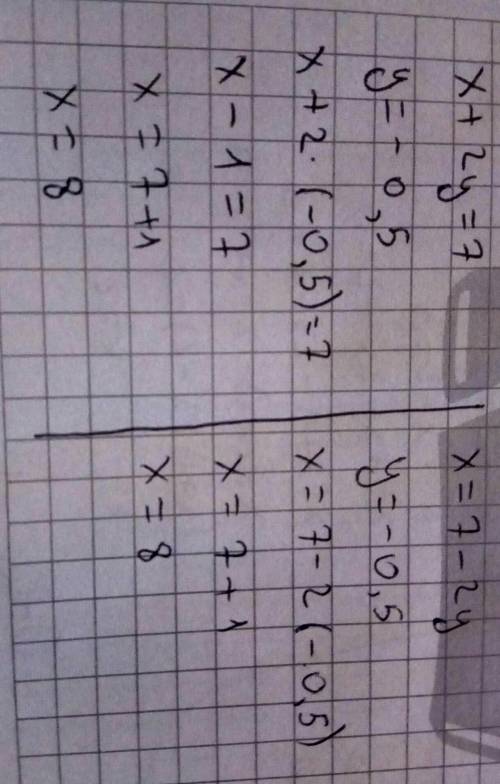 x + 2y = 7
y = - 0,5
x + 2 · (-0,5) = 7
x - 1 = 7
x = 7 + 1
x = 8
x = 7 - 2y
y = - 0,5
x = 7 - 2 (-0,5)
x = 7 + 1
x = 8